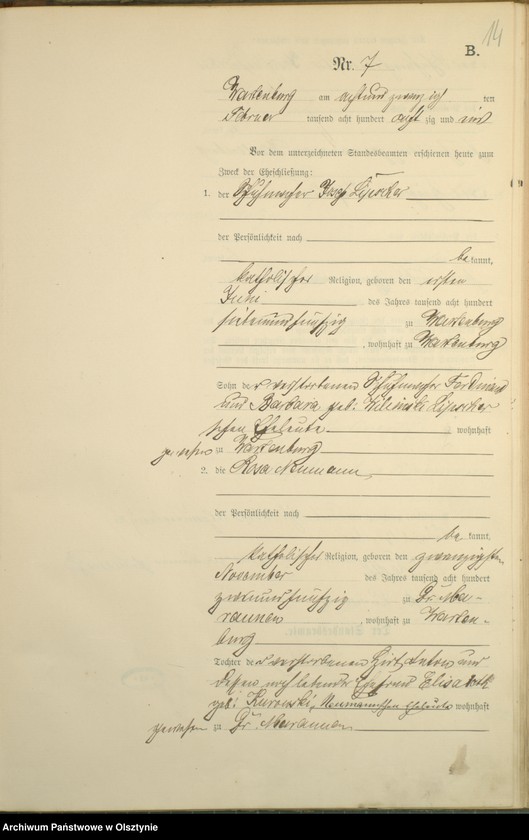 14
B.
Nr. 7
Wartenburg am acht und zwanzig ten
Februar tausend acht hundert acht zig und ein
Vor dem unterzeichneten Standesbeamten erschienen heute zum
Zweck der Eheschließung:
1. der Schuhmacher Josef
der Persönlichkeit nach
be kannt,
katholischer Religion, geboren den ersten
des Jahres tausend acht hundert
sieben und fünfzig zu Wartenburg
, wohnhaft zu Wartenburg
Sohn der verstorbenen Schuhmacher Ferdinand
und Barbara geb:
schen Eheleute wohnhaft
gewesen zu Wartenburg
2. die Rosa Neumann
der Persönlichkeit nach
be kannt,
katholischer Religion, geboren den zwanzigsten
November des Jahres tausend acht hundert
zwei und fünfzig zu Gr. Ma-
raunen , wohnhaft zu Warten-
burg
Tochter der verstorbenen Hirt Anton und
dessen noch lebende Ehefrau Elisabeth
geb: Kurowski, Neumannschen Eheleute wohnhaft
gewesen zu Gr. Maraunen
Archiwum Państwowe w Olsztynie